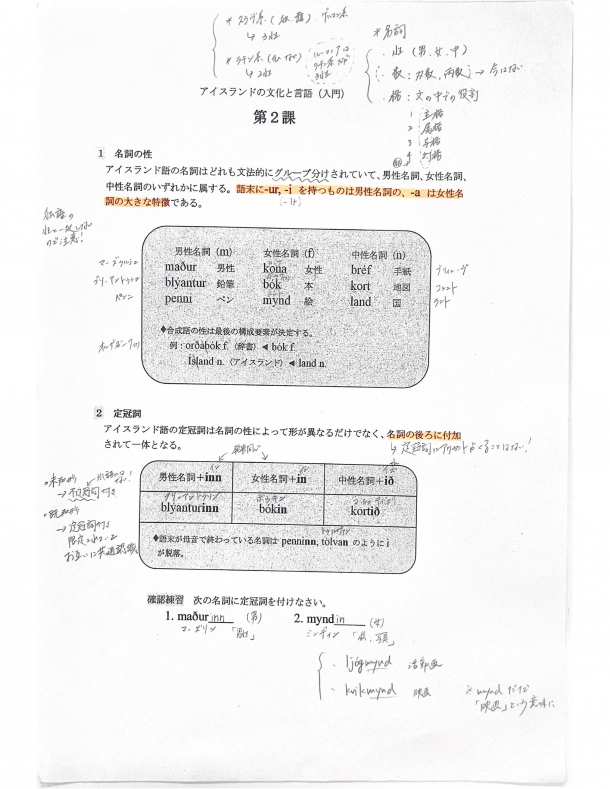 * スラヴ系(仏、露)、ゲルマン系
↳ 3性
* ラテン系(仏など)
↳ 2性
ルーマニアは
ラテン系だが
3性
* 名詞
・性(男、女、中)
・数:
→ 今はない
・格:文の中での役割
1 主格
2 属格
3 与格
4 対格
アイスランドの文化と言語(入門)
第2課
1 名詞の性
アイスランド語の名詞はどれも文法的にグループ分けされていて、男性名詞、女性名詞、
中性名詞のいずれかに属する。語末に-ur, -i を持つものは男性名詞の、-a は女性名
詞の大きな特徴である。
男性名詞 (m) 女性名詞 (f) 中性名詞 (n)
maður 男性 kona 女性 bréf 手紙
blýantur 鉛筆 bók 本 kort 地図
penni ペン mynd 絵 land 国
◆合成語の性は最後の構成要素が決定する。
例:orðabók f.〈辞書〉◀ bók f.
Ísland n.〈アイスランド〉◀ land n.
2 定冠詞
アイスランド語の定冠詞は名詞の性によって形が異なるだけでなく、名詞の後ろに付加
されて一体となる。
↳ 定冠詞にアクセントがくることはない!
・未知
→ 不定冠詞付き
・既知
→ 定冠詞付き
男性名詞+inn 女性名詞+in 中性名詞+ið
blýanturinn bókin kortið
◆語末が母音で終わっている名詞は penninn, tölvan のように i
が脱落。
確認練習 次の名詞に定冠詞を付けなさい。
1. maðurinn (男) 2. myndin (女)
「男性」 ミンディン 「絵、写真」
・ljógmynd
・kvikmynd 映画
※ mynd だけで
「映画」という意味に